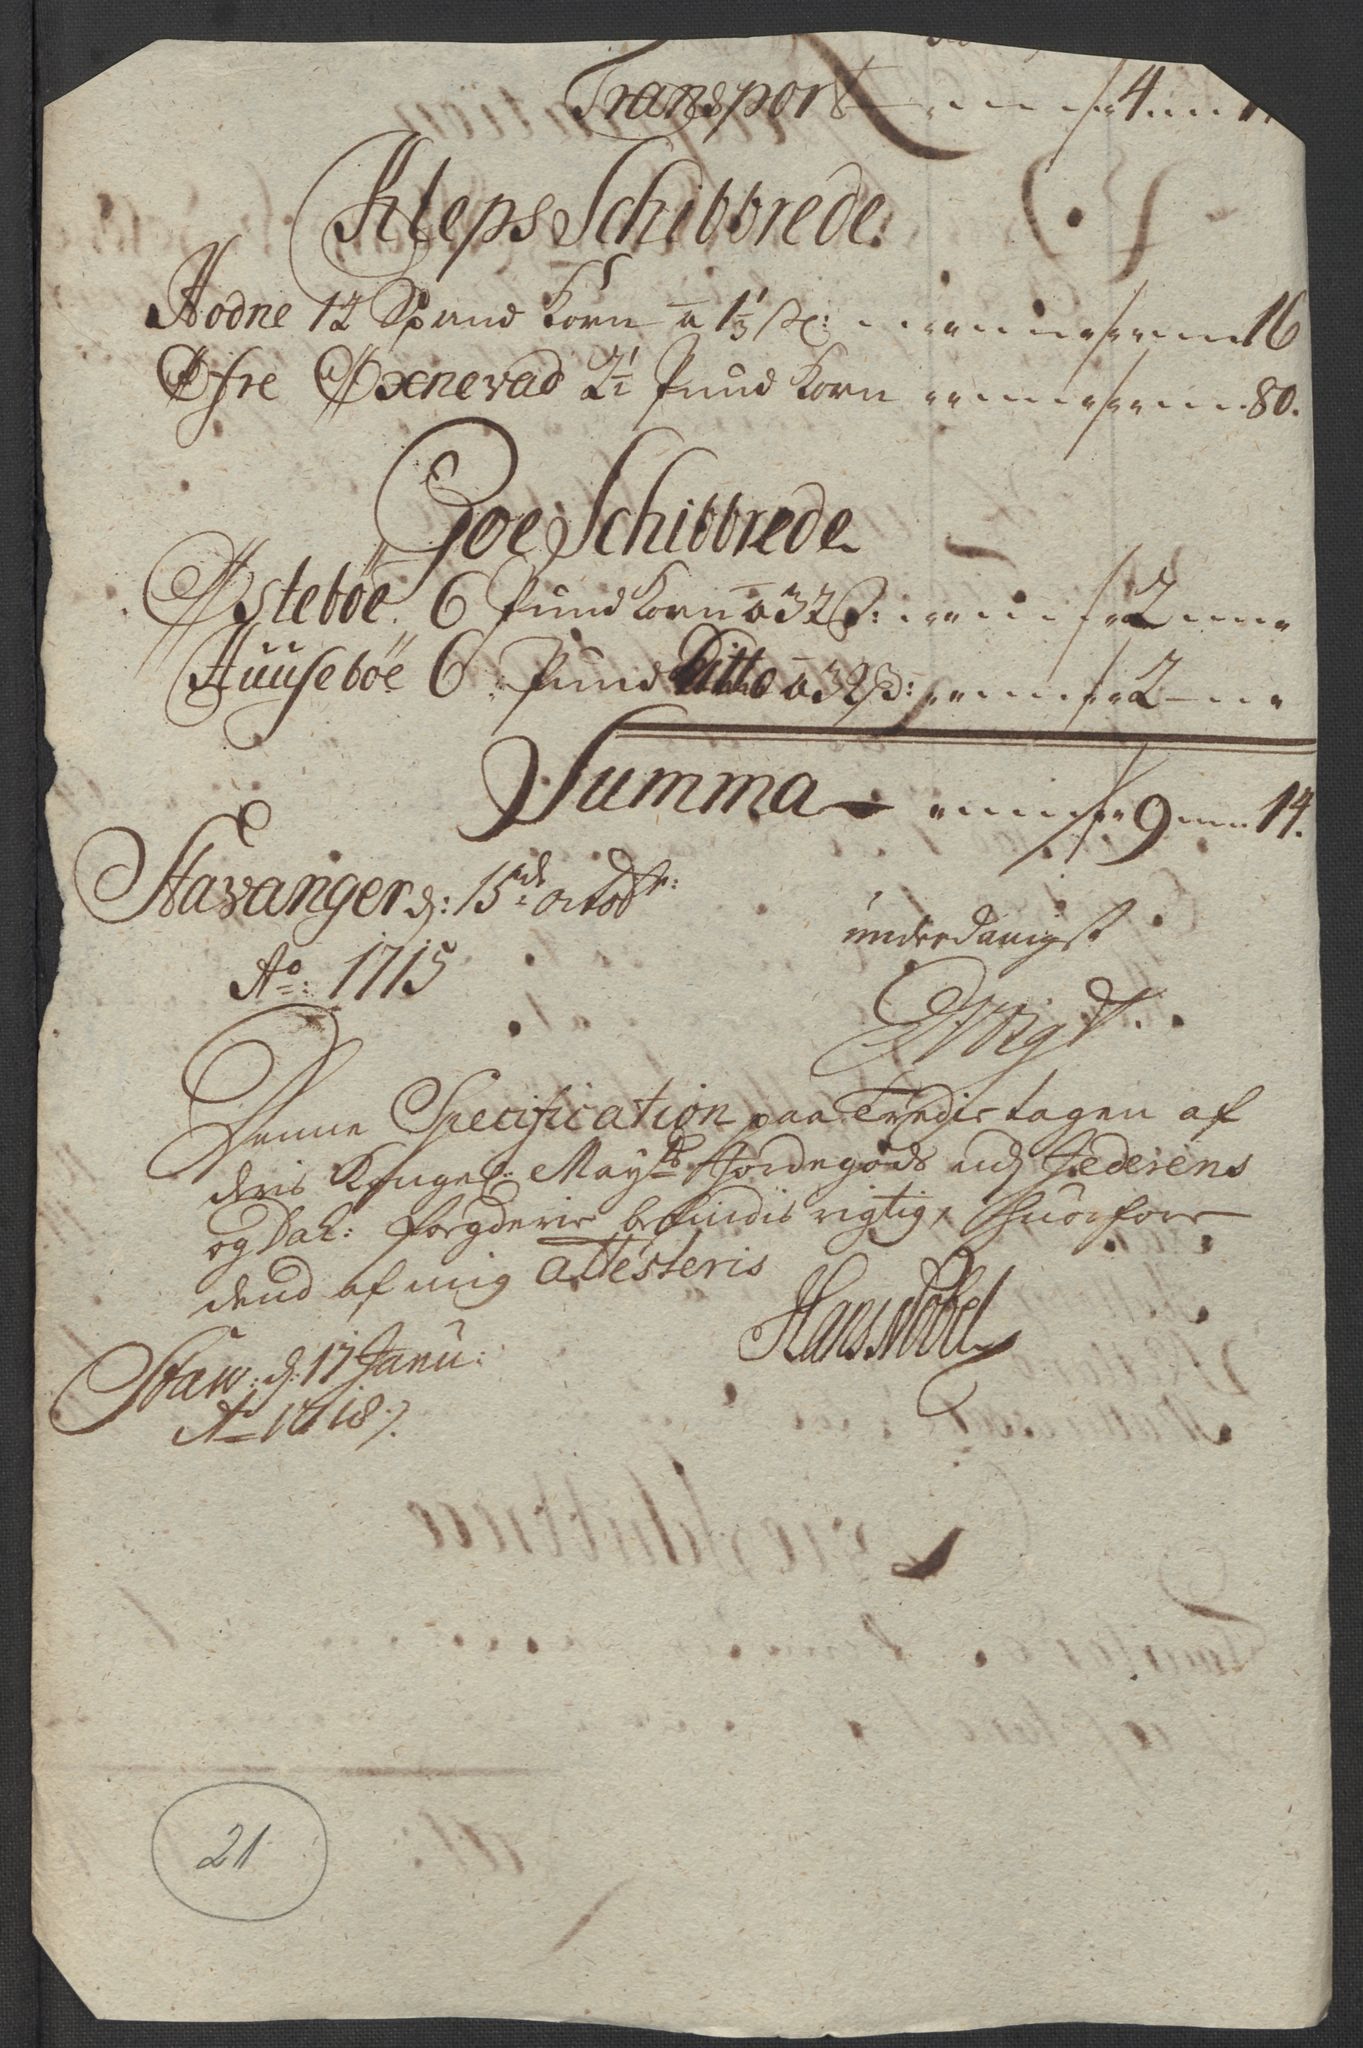 Transport 4
Kleps Schibbrede
Hodne 12 Spand Korn a 1⅓ s: 16
Øfre Øxnevad 2½ Pund Korn 80.
Goe Schibbrede
Østebøe 6 Pund Korn a 32 s: 2
Huusebøe 6 Pund Ditto a 32 s: 2
Summa 9 14.
Stavanger d: 15de octobr:
Ao: 1715
underdanigst
Denne Specification paa Tredie tagen af
deris Kongel: Mayts Jordegods udj Jederens
og Dal: fogderie befindis rigtig, huorfore
dend af mig attesteris
Hans Nobel
Staw: d: 17 Janu:
Ao 1718
21